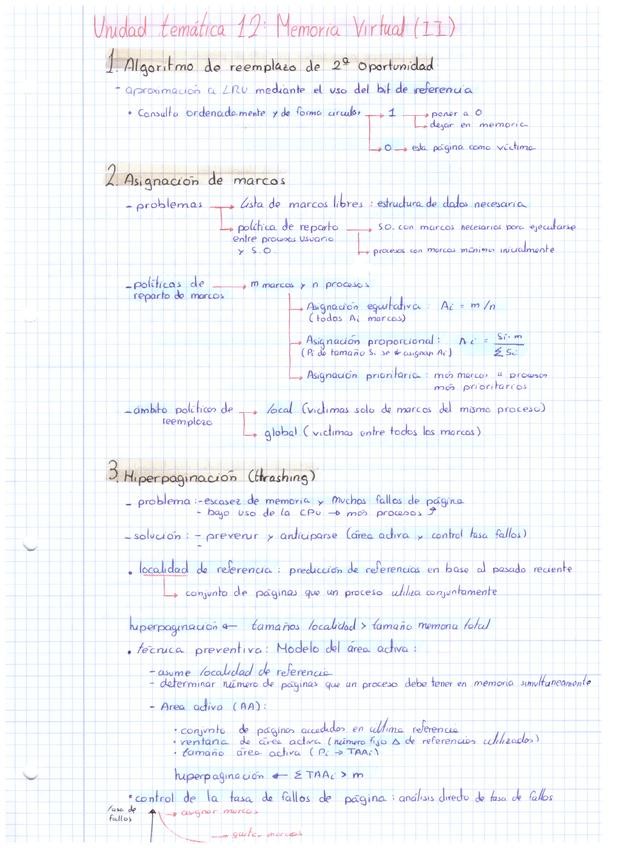 Unidad temática 12: Memoria Virtual (II)
1. Algoritmo de reemplazo de 2ª oportunidad
- aproximación a LRU mediante el uso del bit de referencia
• Consulta ordenadamente y de forma circular → 1 → poner a 0
→ dejar en memoria
→ 0 → esta página como víctima
2. Asignación de marcos
- problemas → Lista de marcos libres : estructura de datos necesaria
→ política de reparto → S.O. con marcos necesarios para ejecutarse
entre procesos usuario
y S.O. → procesos con marcos mínimo inicialmente
- políticas de → m marcos y n procesos
reparto de marcos
→ Asignación equitativa : Ai = m/n
(todos Ai marcos)
→ Asignación proporcional : Ai = Si·m / Σ Si
(Pi de tamaño Si se asignan Ai)
→ Asignación prioritaria : más marcos a procesos
más prioritarios
- ámbito políticas de → local (víctimas solo de marcos del mismo proceso)
reemplazo
→ global (víctimas entre todos los marcos)
3. Hiperpaginación (thrashing)
- problema : - escasez de memoria y muchos fallos de página
- bajo uso de la CPU → más procesos ↑
- solución : - prevenir y anticiparse (área activa y control tasa fallos)
-
• localidad de referencia : predicción de referencias en base al pasado reciente
→ conjunto de páginas que un proceso utiliza conjuntamente
hiperpaginación ← tamaños localidad > tamaño memoria total
• técnica preventiva : Modelo del área activa :
- asume localidad de referencia
- determinar número de páginas que un proceso debe tener en memoria simultaneamente
- Area activa (AA) :
• conjunto de páginas accedidas en última referencia
• ventana de área activa (número fijo Δ de referencias utilizadas)
• tamaño área activa (Pi → TAAi)
hiperpaginación ← Σ TAAi > m
• control de la tasa de fallos de página : análisis directo de tasa de fallos
tasa de
fallos ↑ → asignar marcos
→ quitar marcos